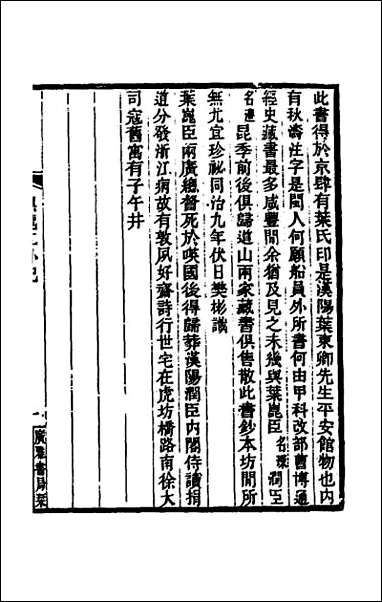 此書得於京肆有葉氏印是漢陽葉東卿先生平安館物也內
有秋濤注字是閩人何願船員外所書何由甲科改部曹博通
經史藏書最多咸豐閒余猶及見之未幾與葉崑臣名琛潤臣
名澧昆季前後俱歸道山兩家藏書俱售散此書鈔本坊閒所
無尤宜珍祕同治九年伏日樊彬識
葉崑臣兩廣總督死於㗆國後得歸葬漢陽潤臣內閣侍讀捐
道分發浙江病故有敦夙好齋詩行世宅在虎坊橋路南徐大
司寇舊寓有子午井
廣雅書局栞